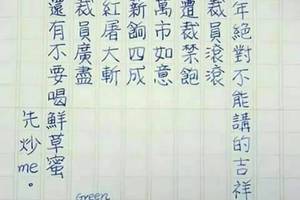 年絕對不能講的吉祥
裁員滾滾
遭裁禁飽
萬市如意
新餉四成
紅屠大斬
裁員廣盡
還有不要喝鮮草蜜
先炒me。
Green